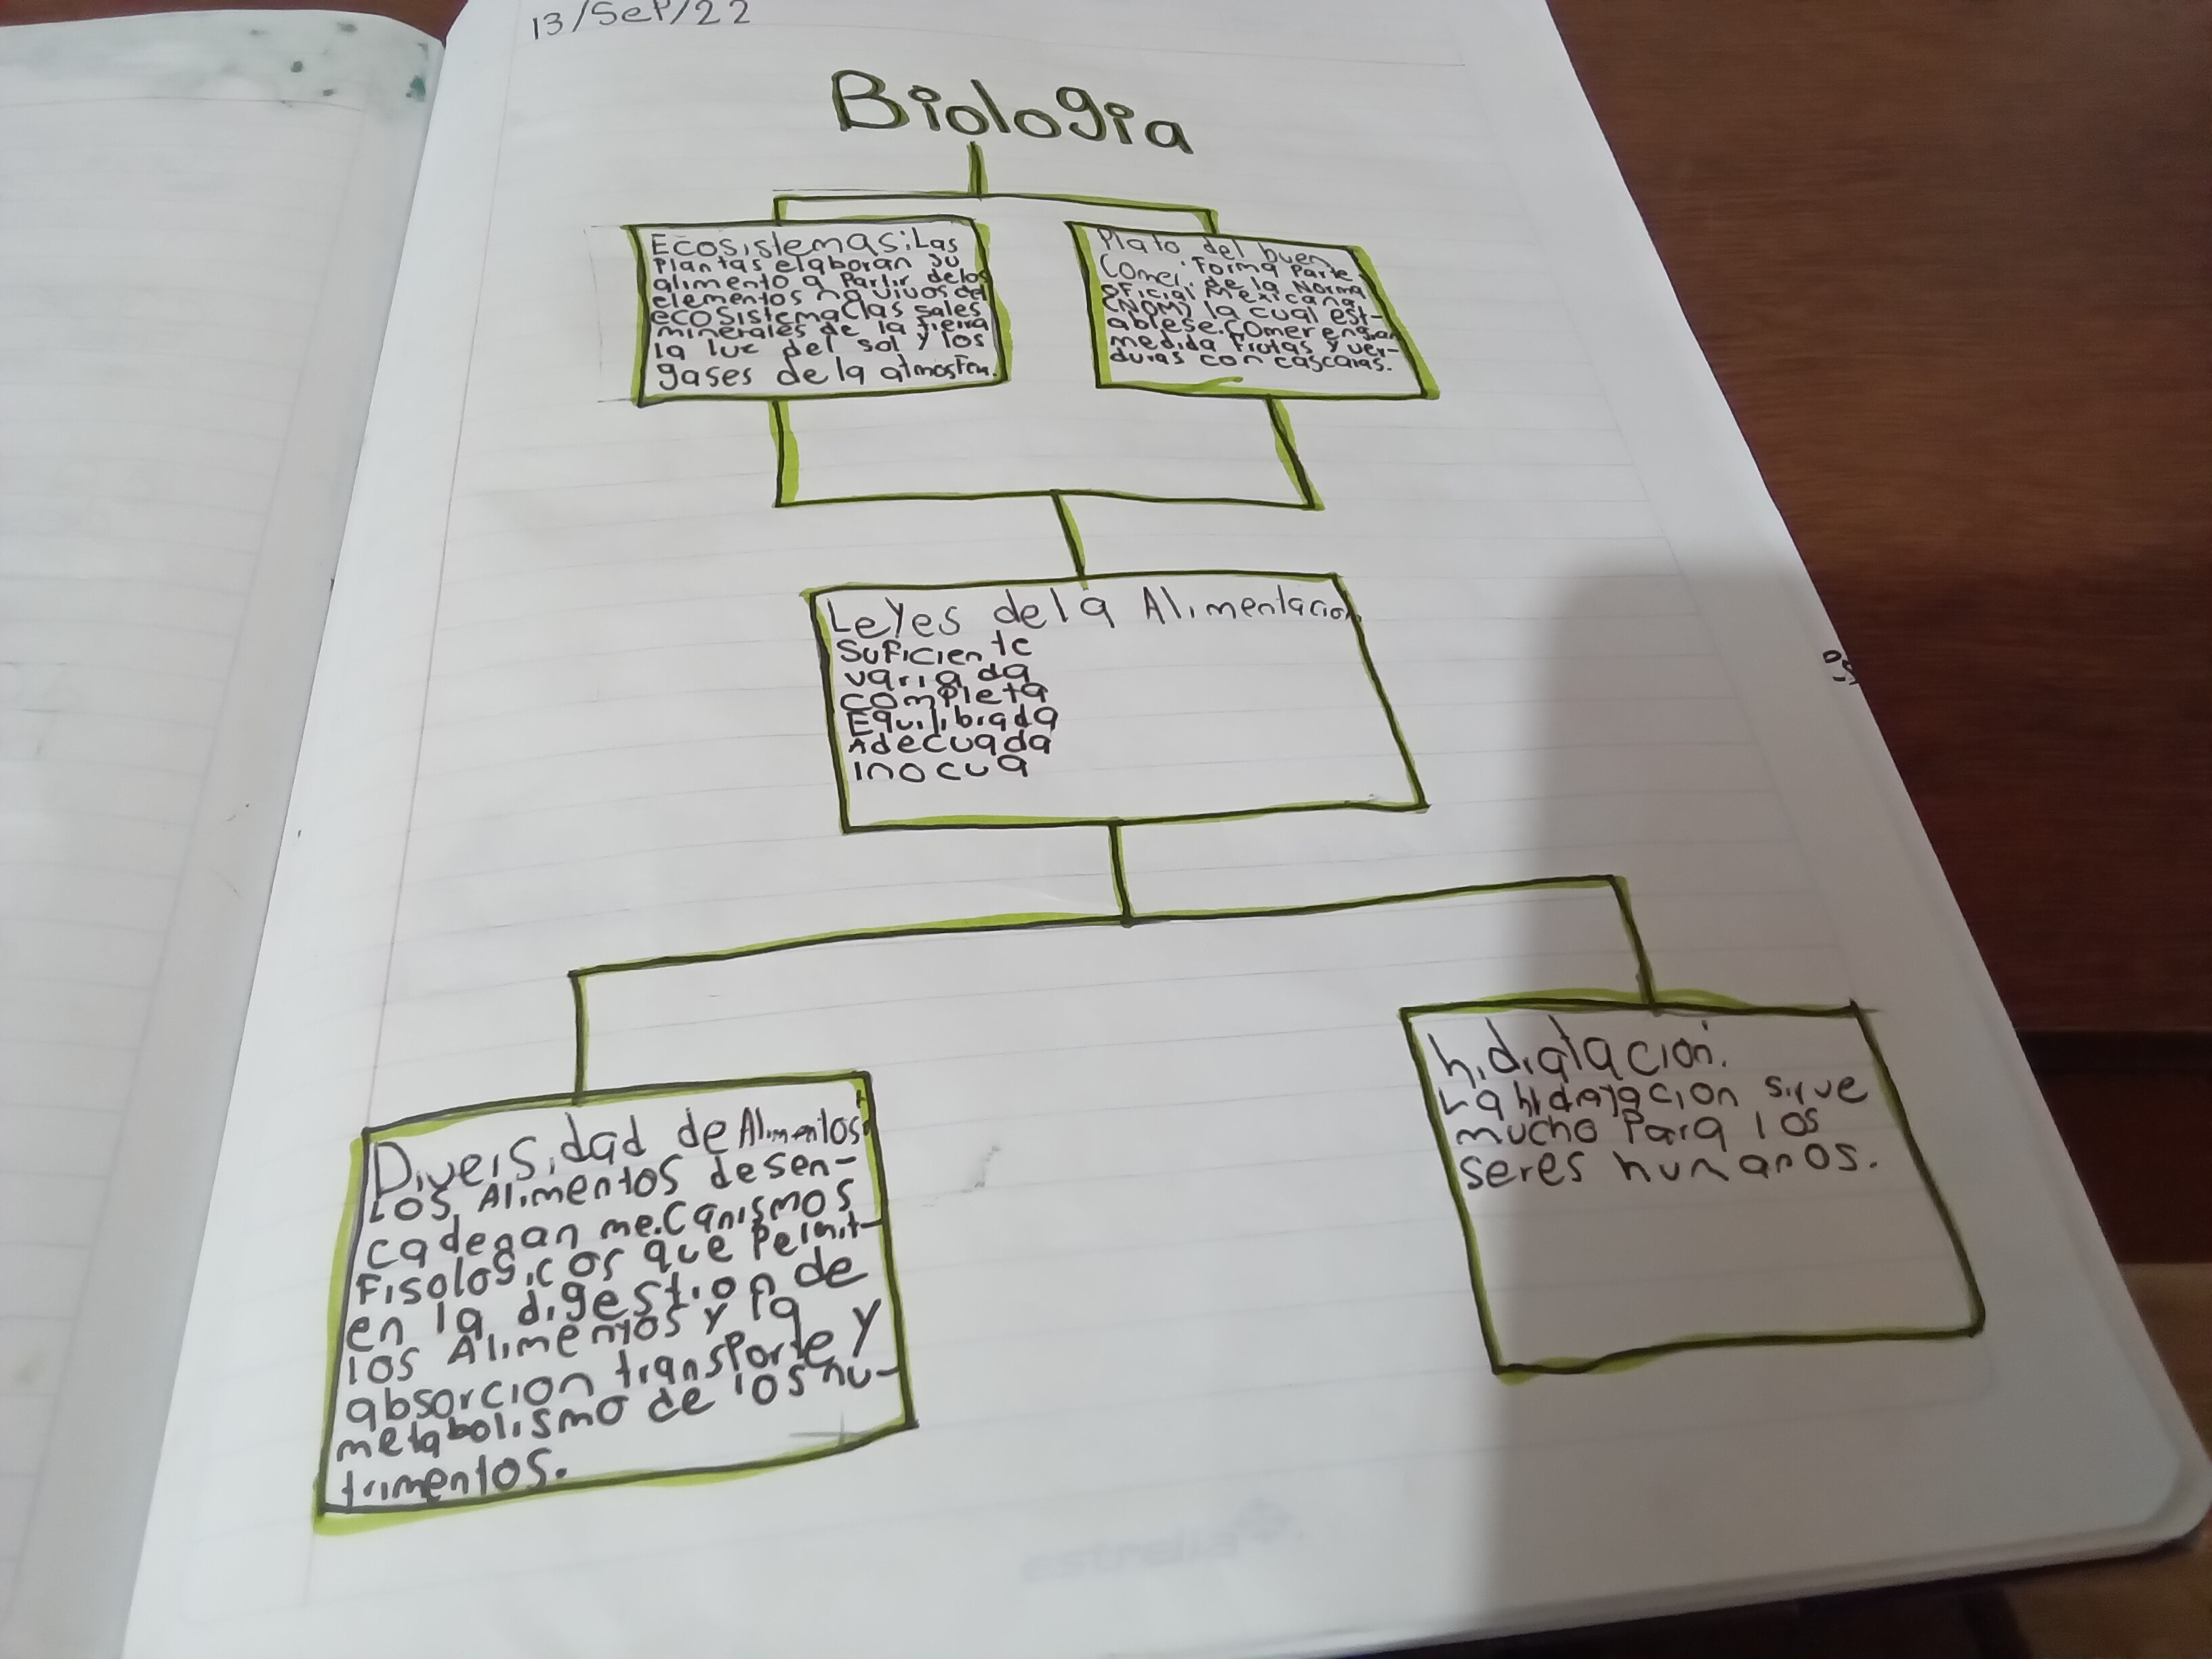 13/Sep/22
Biologia
Ecosistemas: Las
Plantas elaboran su
alimento a Partir de los
elementos no vivos del
ecosistema (las sales
minerales de la tierra
la luz del sol y los
gases de la atmosfera.
Plato del buen
Comer: Forma Parte
de la Norma
Oficial Mexicana
(NOM) la cual est-
ablese. Comer en gran
medida Frutas y ver-
duras con cascaras.
Leyes de la Alimentacion
Suficiente
variada
completa
Equilibrada
Adecuada
inocua
Diversidad de Alimentos
Los Alimentos desen-
cadenan mecanismos
Fisologicos que Permit-
en la digestion de
los Alimentos y la
absorcion transporte y
metabolismo de los nu-
trimentos.
hidratación.
La hidratacion sirve
mucho Para los
seres humanos.